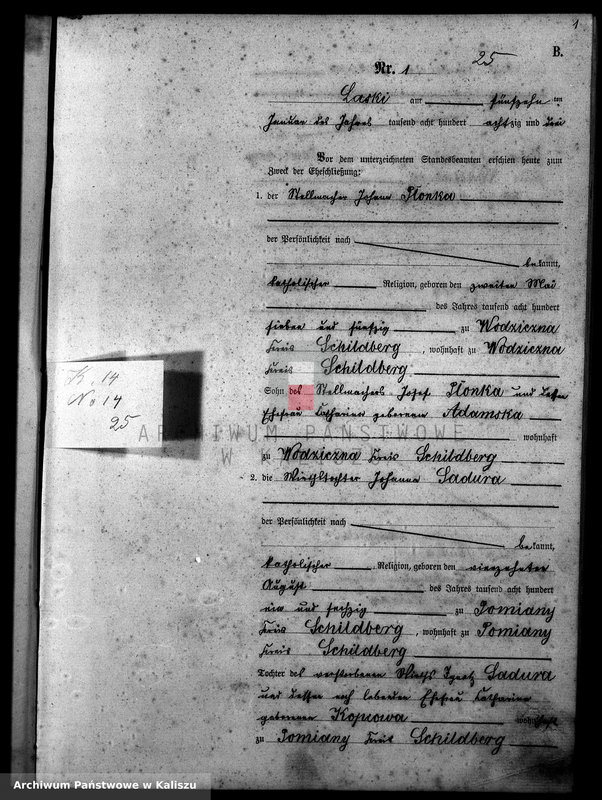 1
B.
25
Nr. 1
Laski am fünfzehn ten
Januar des Jahres tausend acht hundert achtzig und drei
Vor dem unterzeichneten Standesbeamten erschien heute zum
Zweck der Eheschließung:
1. der Stellmacher Johann Płonka
der Persönlichkeit nach
bekannt,
katholischer Religion, geboren den zweiten Mai
des Jahres tausend acht hundert
sieben und fünfzig zu Wodziczna
Kreis Schildberg, wohnhaft zu Wodziczna
Kreis Schildberg
Sohn des Stellmachers Josef Płonka und
Ehefrau Catharina geborenen Adamska
wohnhaft
zu Wodziczna Kreis Schildberg
2. die Wirthstochter Johanna Sadura
der Persönlichkeit nach
bekannt,
katholischer Religion, geboren den vierzehnten
August des Jahres tausend acht hundert
ein und sechzig zu Pomiany
Kreis Schildberg, wohnhaft zu Pomiany
Kreis Schildberg
Tochter des verstorbenen Wirths Ignatz Sadura
und dessen noch lebenden Ehefrau Catharina
geborenen Kopiowa wohnhaft
zu Pomiany Kreis Schildberg
K. 14
No 14
25
ARCHIWUM PAŃSTWOWE
W
Archiwum Państwowe w Kaliszu